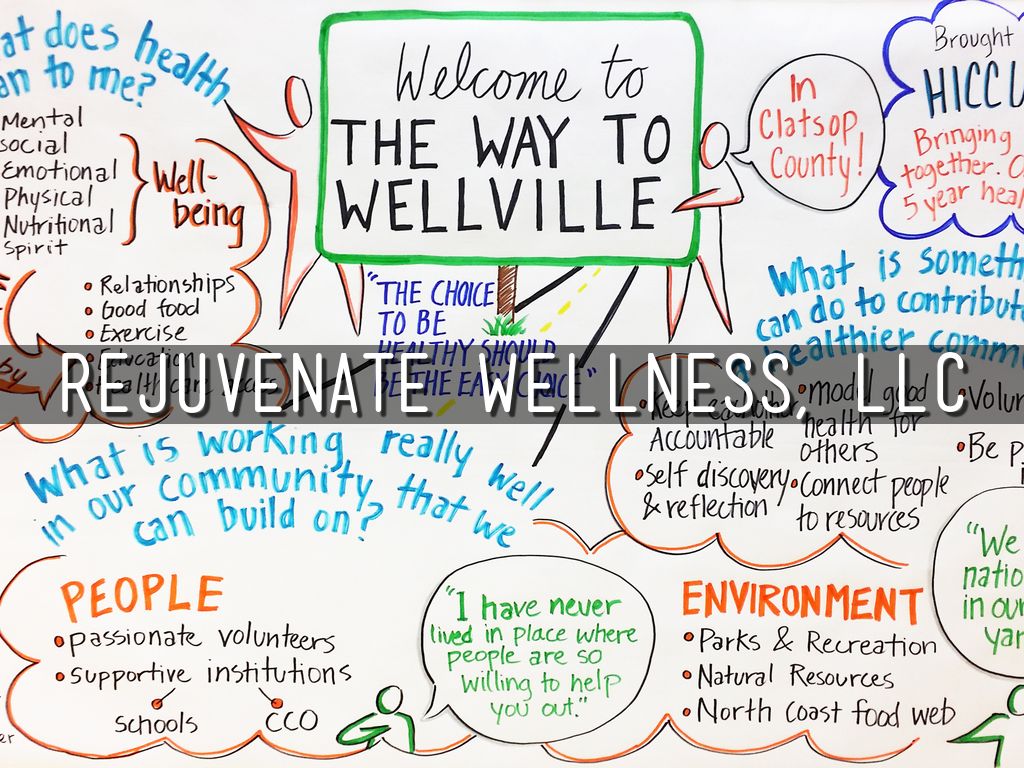 What does health
mean to me?
Mental
Social
Emotional
Physical
Nutritional
Spirit
Well-
being
• Relationships
• Good food
• Exercise
• Education
• Health care access
Welcome to
THE WAY TO
WELLVILLE
In
Clatsop
County!
Brought
HICCU
Bringing
together.
5 year heal
"THE CHOICE
TO BE
HEALTHY SHOULD
BE THE EASY CHOICE"
What is someth
can do to contribut
healthier commu
REJUVENATE WELLNESS, LLC
• Keep each other
Accountable
• Self discovery
& reflection
• model good
health for
others
• Connect people
to resources
• Volun
• Be p
What is working really well
in our community that we
can build on?
PEOPLE
• passionate volunteers
• supportive institutions
schools
CCO
"I have never
lived in place where
people are so
willing to help
you out."
ENVIRONMENT
• Parks & Recreation
• Natural Resources
• North Coast food web
"We
natio
in our
yar